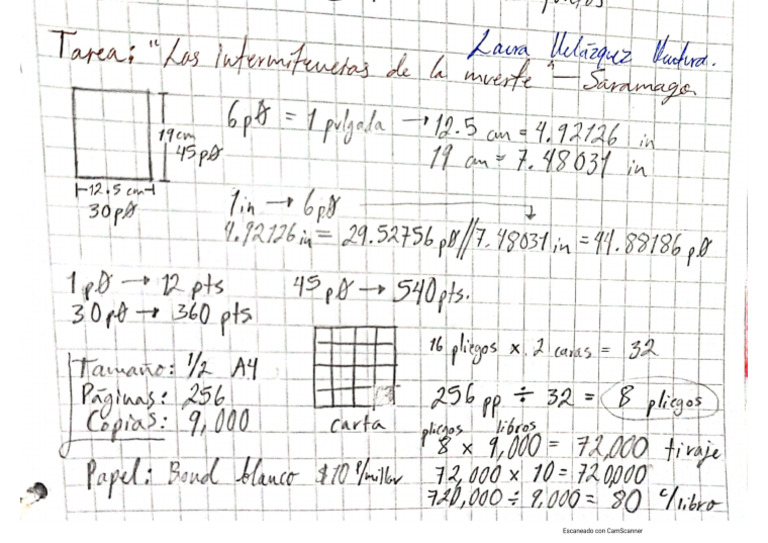 Laura Velázquez Ventura.
Tarea: "Las intermitencias de la muerte" — Saramago
19 cm
45 pØ
12.5 cm
30 pØ
6 pØ = 1 pulgada → 12.5 cm = 4.92126 in
19 cm = 7.48031 in
1 in → 6 pØ
4.92126 in = 29.52756 pØ // 7.48031 in = 44.88186 pØ
1 pØ → 12 pts
45 pØ → 540 pts.
30 pØ → 360 pts
Tamaño: 1/2 A4
Páginas: 256
Copias: 9,000
carta
16 pliegos x 2 caras = 32
256 pp ÷ 32 = 8 pliegos
pliegos libros
8 x 9,000 = 72,000 tiraje
Papel: Bond blanco $10 c/millar
72,000 x 10 = 720,000
720,000 ÷ 9,000 = 80 c/libro
Escaneado con CamScanner